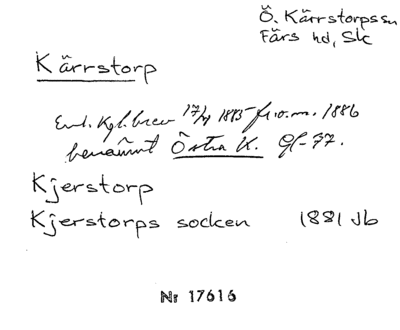 Ö. Kärrstorps sn
Färs hd, Sk
Kärrstorp
Enl. Kgl. brev 17/4 1885 fr.o.m. 1886
benämnt Östra K. Gf-77.
Kjerstorp
Kjerstorps socken 1881 Jb
Nr 17616